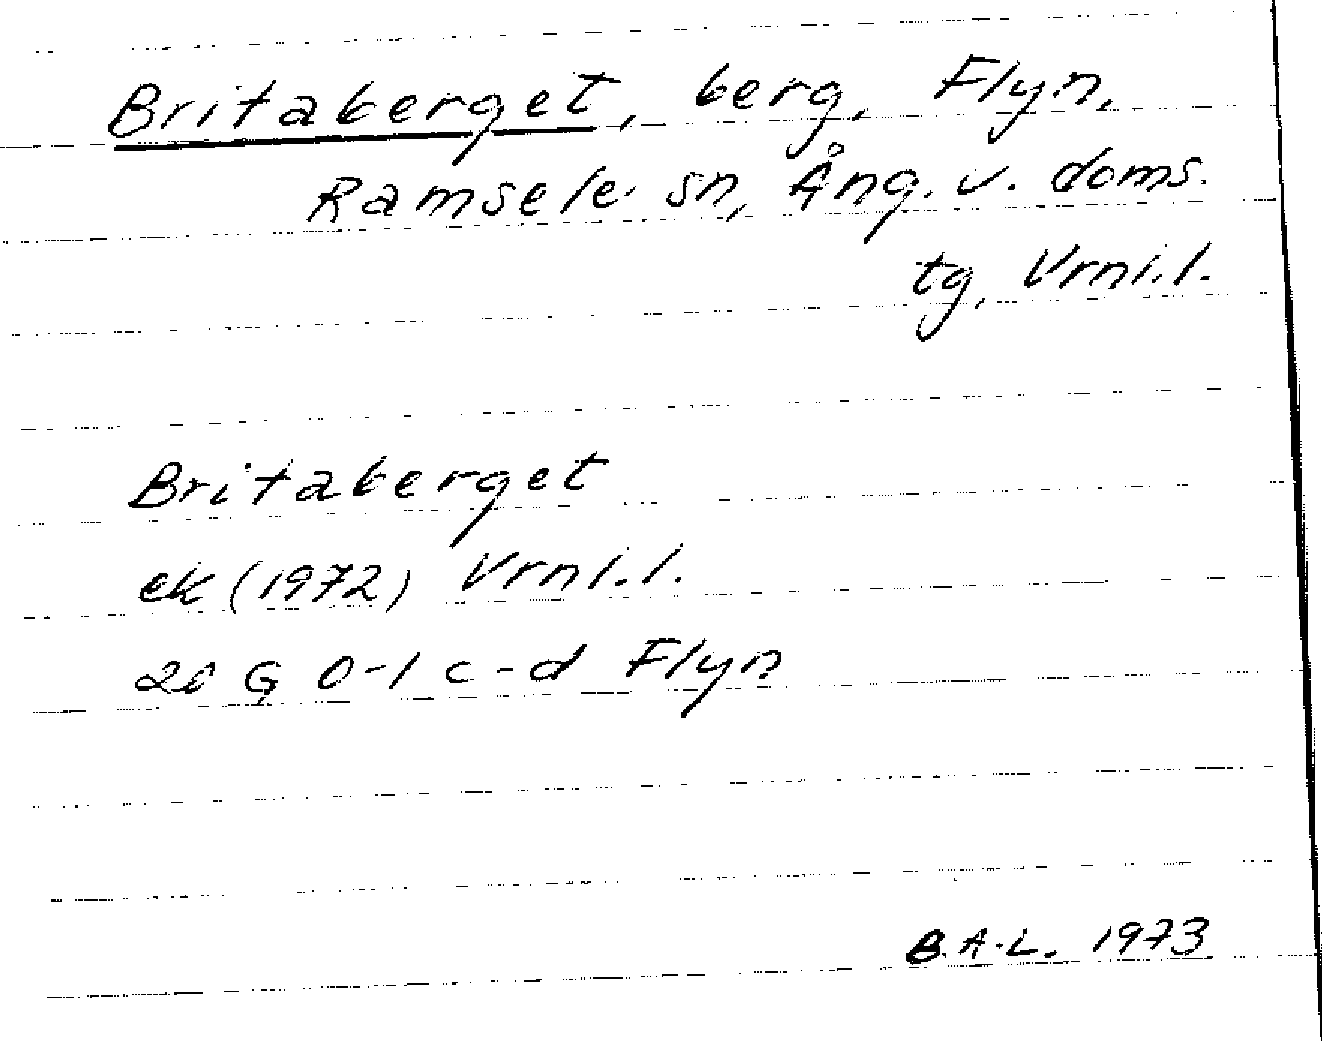 Britaberget, berg, Flyn,
Ramsele sn, Ång. v. doms.
tg, Vrni.l.
Britaberget
ek (1972) Vrni.l.
20 G 0-1 c-d Flyn
B.A-L. 1973